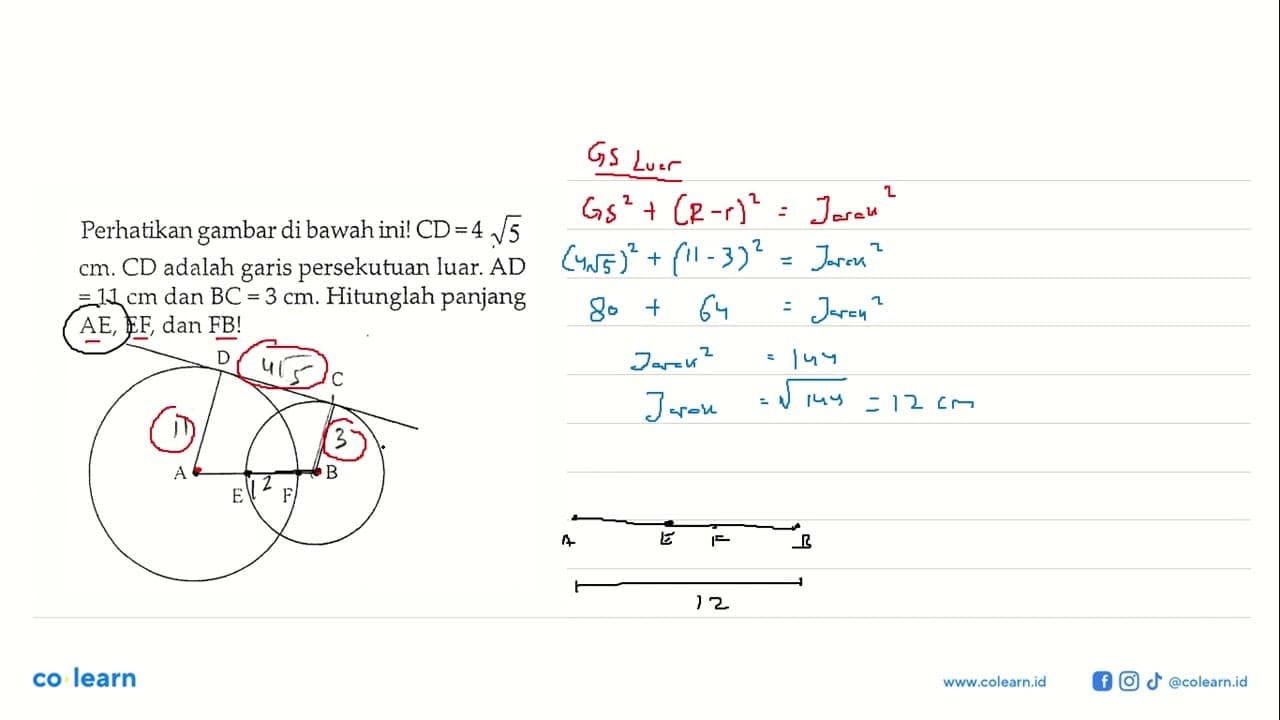 Perhatikan gambar di bawah ini! CD = 4 √5
cm. CD adalah garis persekutuan luar. AD
= 11 cm dan BC = 3 cm. Hitunglah panjang
AE, EF, dan FB!
D
4√5
C
11
3
A
B
E
12
F
GS Luar
GS² + (R-r)² = Jarak²
(4√5)² + (11-3)² = Jarak²
80 + 64 = Jarak²
Jarak² = 144
Jarak = √144 = 12 cm
A E F B
12
co·learn
www.colearn.id
@colearn.id